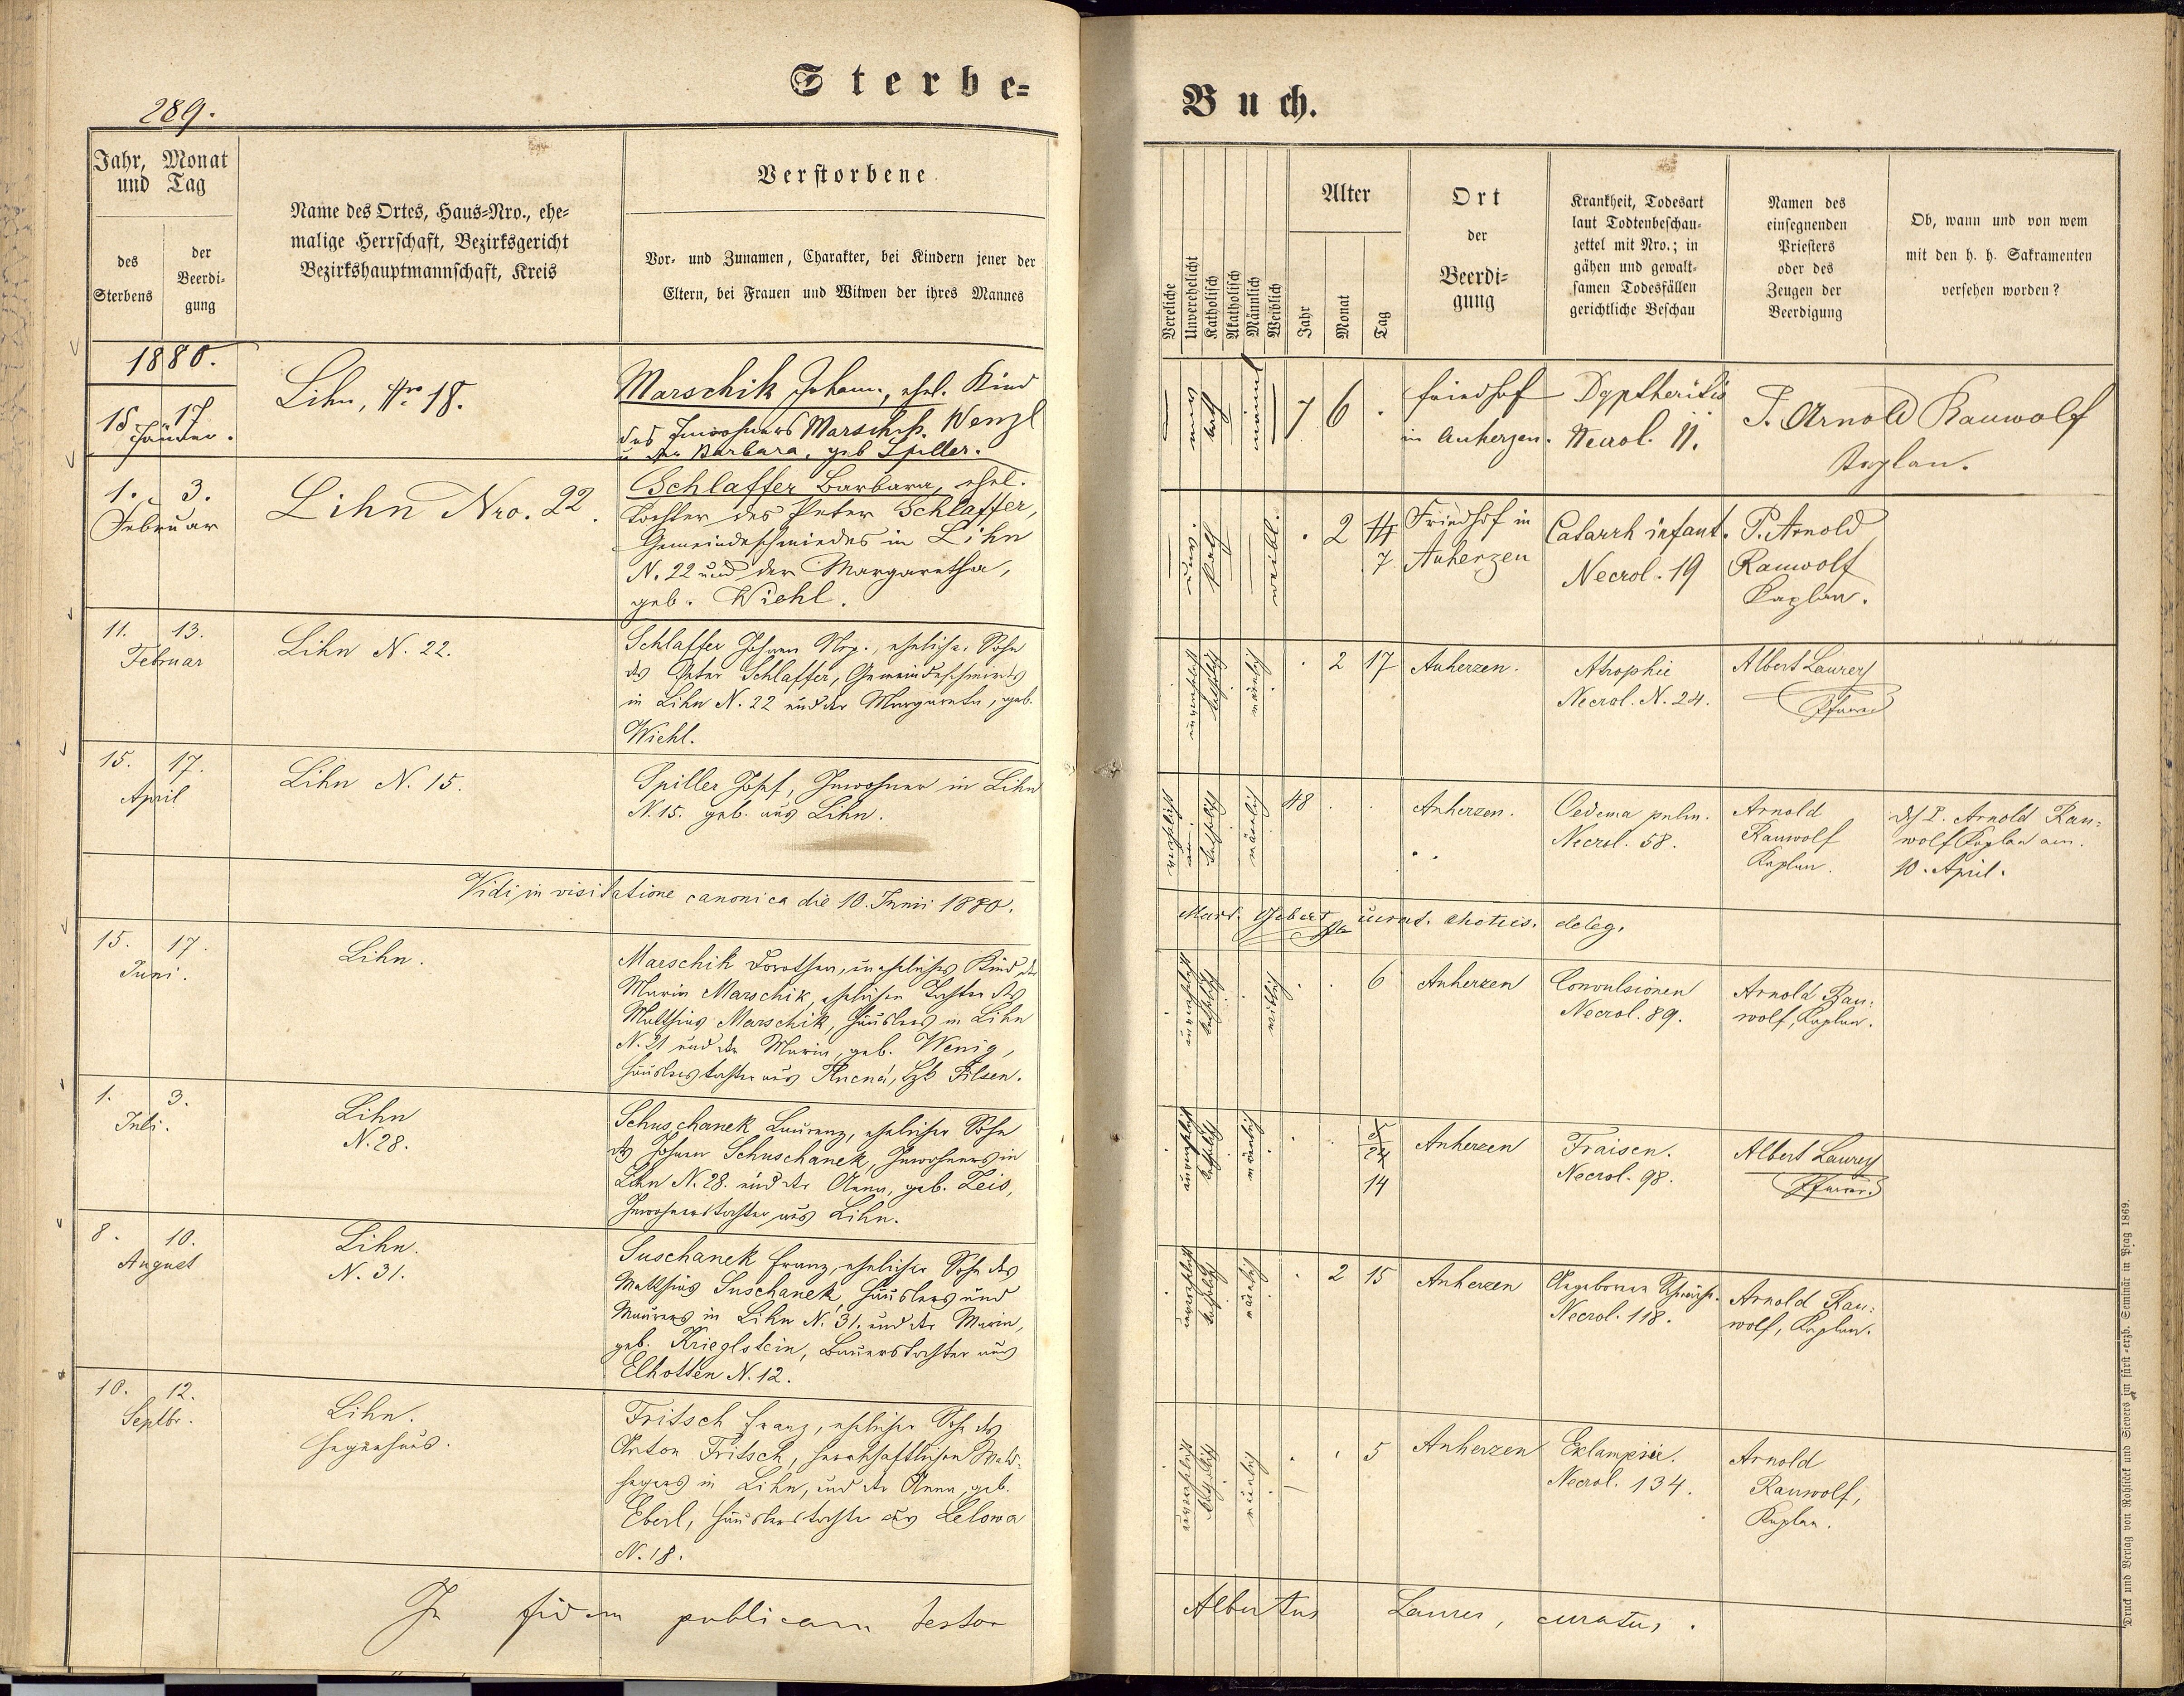 Sterbe-
289.
Jahr, Monat
und Tag
des
Sterbens
der
Beerdi-
gung
Name des Ortes, Haus-Nro., ehe-
malige Herrschaft, Bezirksgericht
Bezirkshauptmannschaft, Kreis
Verstorbene
Vor- und Zunamen, Charakter, bei Kindern jener der
Eltern, bei Frauen und Witwen der ihres Mannes
1880.
15 17
Jänner.
Lihn, Nro 18.
Marschik Johann, ehel. Kind
des Inwohners Marschik Wenzl
u. der Barbara, geb Spiller.
1. 3.
Februar
Lihn Nro. 22.
Schlaffer Barbara, ehel.
Tochter des Peter Schlaffer,
Gemeindeschmiedes in Lihn
N. 22 und der Margaretha,
geb. Wiehl.
11. 13.
Februar
Lihn N. 22.
Schlaffer Johann Nep., ehelicher Sohn
des Peter Schlaffer, Gemeindeschmieds
in Lihn N. 22 und der Margareta, geb.
Wiehl.
15. 17.
April
Lihn N. 15.
Spiller Josef, Inwohner in Lihn
N. 15. geb. aus Lihn.
Vidi in visitatione canonica die 10. Junii 1880.
15. 17.
Juni.
Lihn.
Marschik Dorothea, uneheliches Kind der
Maria Marschik, ehelichen Tochter des
Mathias Marschik, Häuslers in Lihn
N. 21 und der Maria, geb. Wenig,
Häuslerstochter aus Lucná, Bzk Pilsen.
1. 3.
Juli.
Lihn
N. 28.
Schuschanek Laurenz, ehelicher Sohn
des Johann Schuschanek, Inwohners in
Lihn N. 28. und der Anna, geb. Zeis,
Inwohnerstochter aus Lihn.
8. 10.
August
Lihn.
N. 31.
Suschanek Franz, ehelicher Sohn des
Mathias Suschanek, Häuslers und
Maurers in Lihn N. 31. und der Maria,
geb. Krieglstein, Bauerstochter aus
Elhotten N. 12.
10. 12.
Septbr.
Lihn.
Hegerhaus.
Fritsch Franz, ehelicher Sohn des
Anton Fritsch, herrschaftlichen Wald-
hegers in Lihn, und der Anna, geb.
Eberl, Häuslerstochter aus Lelowa
N. 18.
In fidem publicam testor
Buch.
Vereliche
Unverehelicht
Katholisch
Akatholisch
Männlich
Weiblich
Alter
Jahr
Monat
Tag
Ort
der
Beerdi-
gung
Krankheit, Todesart
laut Todtenbeschau-
zettel mit Nro.; in
gähen und gewalt-
samen Todesfällen
gerichtliche Beschau
Namen des
einsegnenden
Priesters
oder des
Zeugen der
Beerdigung
Ob, wann und von wem
mit den h. h. Sakramenten
versehen worden?
unv
kath
männl
7 6 .
Friedhof
in Auherzen.
Dyptheritis
Necrol. 11.
P. Arnold Rauwolf
Kaplan.
unv.
kath
weibl.
. 2 14
7
Friedhof in
Auherzen
Catarrh infant.
Necrol. 19
P. Arnold
Rauwolf
Kaplan.
unverehelicht
katholisch
männlich
. 2 17
Auherzen.
Atrophie
Necrol. N. 24.
Albert Laurer
Pfarrer
verehelicht
katholisch
männlich
48 . .
Auherzen.
Oedema pulm.
Necrol. 58.
Arnold
Rauwolf
Kaplan.
P. Arnold Rau-
wolf Kaplan am
10. April.
deleg.
unverehelicht
katholisch
weiblich
. . 6
Auherzen
Convulsionen
Necrol. 89.
Arnold Rau-
wolf, Kaplan.
unverehelicht
katholisch
männlich
. . 24
14
Auherzen
Fraisen.
Necrol. 98.
Albert Laurer
Pfarrer
unverehelicht
katholisch
männlich
. 2 15
Auherzen
Angeborene Schwäche.
Necrol. 118.
Arnold Rau-
wolf, Kaplan.
unverehelicht
katholisch
männlich
. . 5
Auherzen
Eklampsie.
Necrol. 134.
Arnold
Rauwolf,
Kaplan.
Albertus Laurer, curatus.
Druck und Verlag von Rohlicek und Sievers im fürst-erzb. Seminär in Prag 1869.